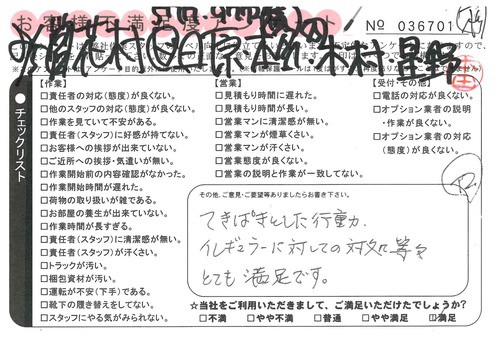 お客様不満足度アンケート
No 036701
木村 星野
チェックリスト
【作業】
□責任者の対応（態度）が良くない。
□他のスタッフの対応（態度）が良くない。
□作業を見ていて不安がある。
□責任者（スタッフ）に好感が持てない。
□お客様への挨拶が出来ていない。
□ご近所への挨拶・気遣いが無い。
□作業開始前の内容確認がなかった。
□作業開始時間が遅れた。
□荷物の取り扱いが雑である。
□お部屋の養生が出来ていない。
□作業時間が長すぎる。
□責任者（スタッフ）に清潔感が無い。
□責任者（スタッフ）が汗くさい。
□トラックが汚い。
□梱包資材が汚い。
□運転が不安（下手）である。
□靴下の履き替えをしてない。
□スタッフにやる気がみられない。
【営業】
□見積もり時間に遅れた。
□見積もり時間が長い。
□営業マンに清潔感が無い。
□営業マンが煙草くさい。
□営業マンが汗くさい。
□営業態度が良くない。
□営業の説明と作業が一致してない。
【受付・その他】
□電話の対応が良くない。
□オプション業者の説明
・作業が良くない。
□オプション業者の対応
（態度）が良くない。
その他、ご意見・ご要望等ありましたらお書き下さい。
てきぱきとした行動力、
イレギュラーに対しての対処等々
とても満足です。
☆当社をご利用いただきまして、ご満足いただけたでしょうか？
□不満 □やや不満 □普通 □やや満足 ☑満足